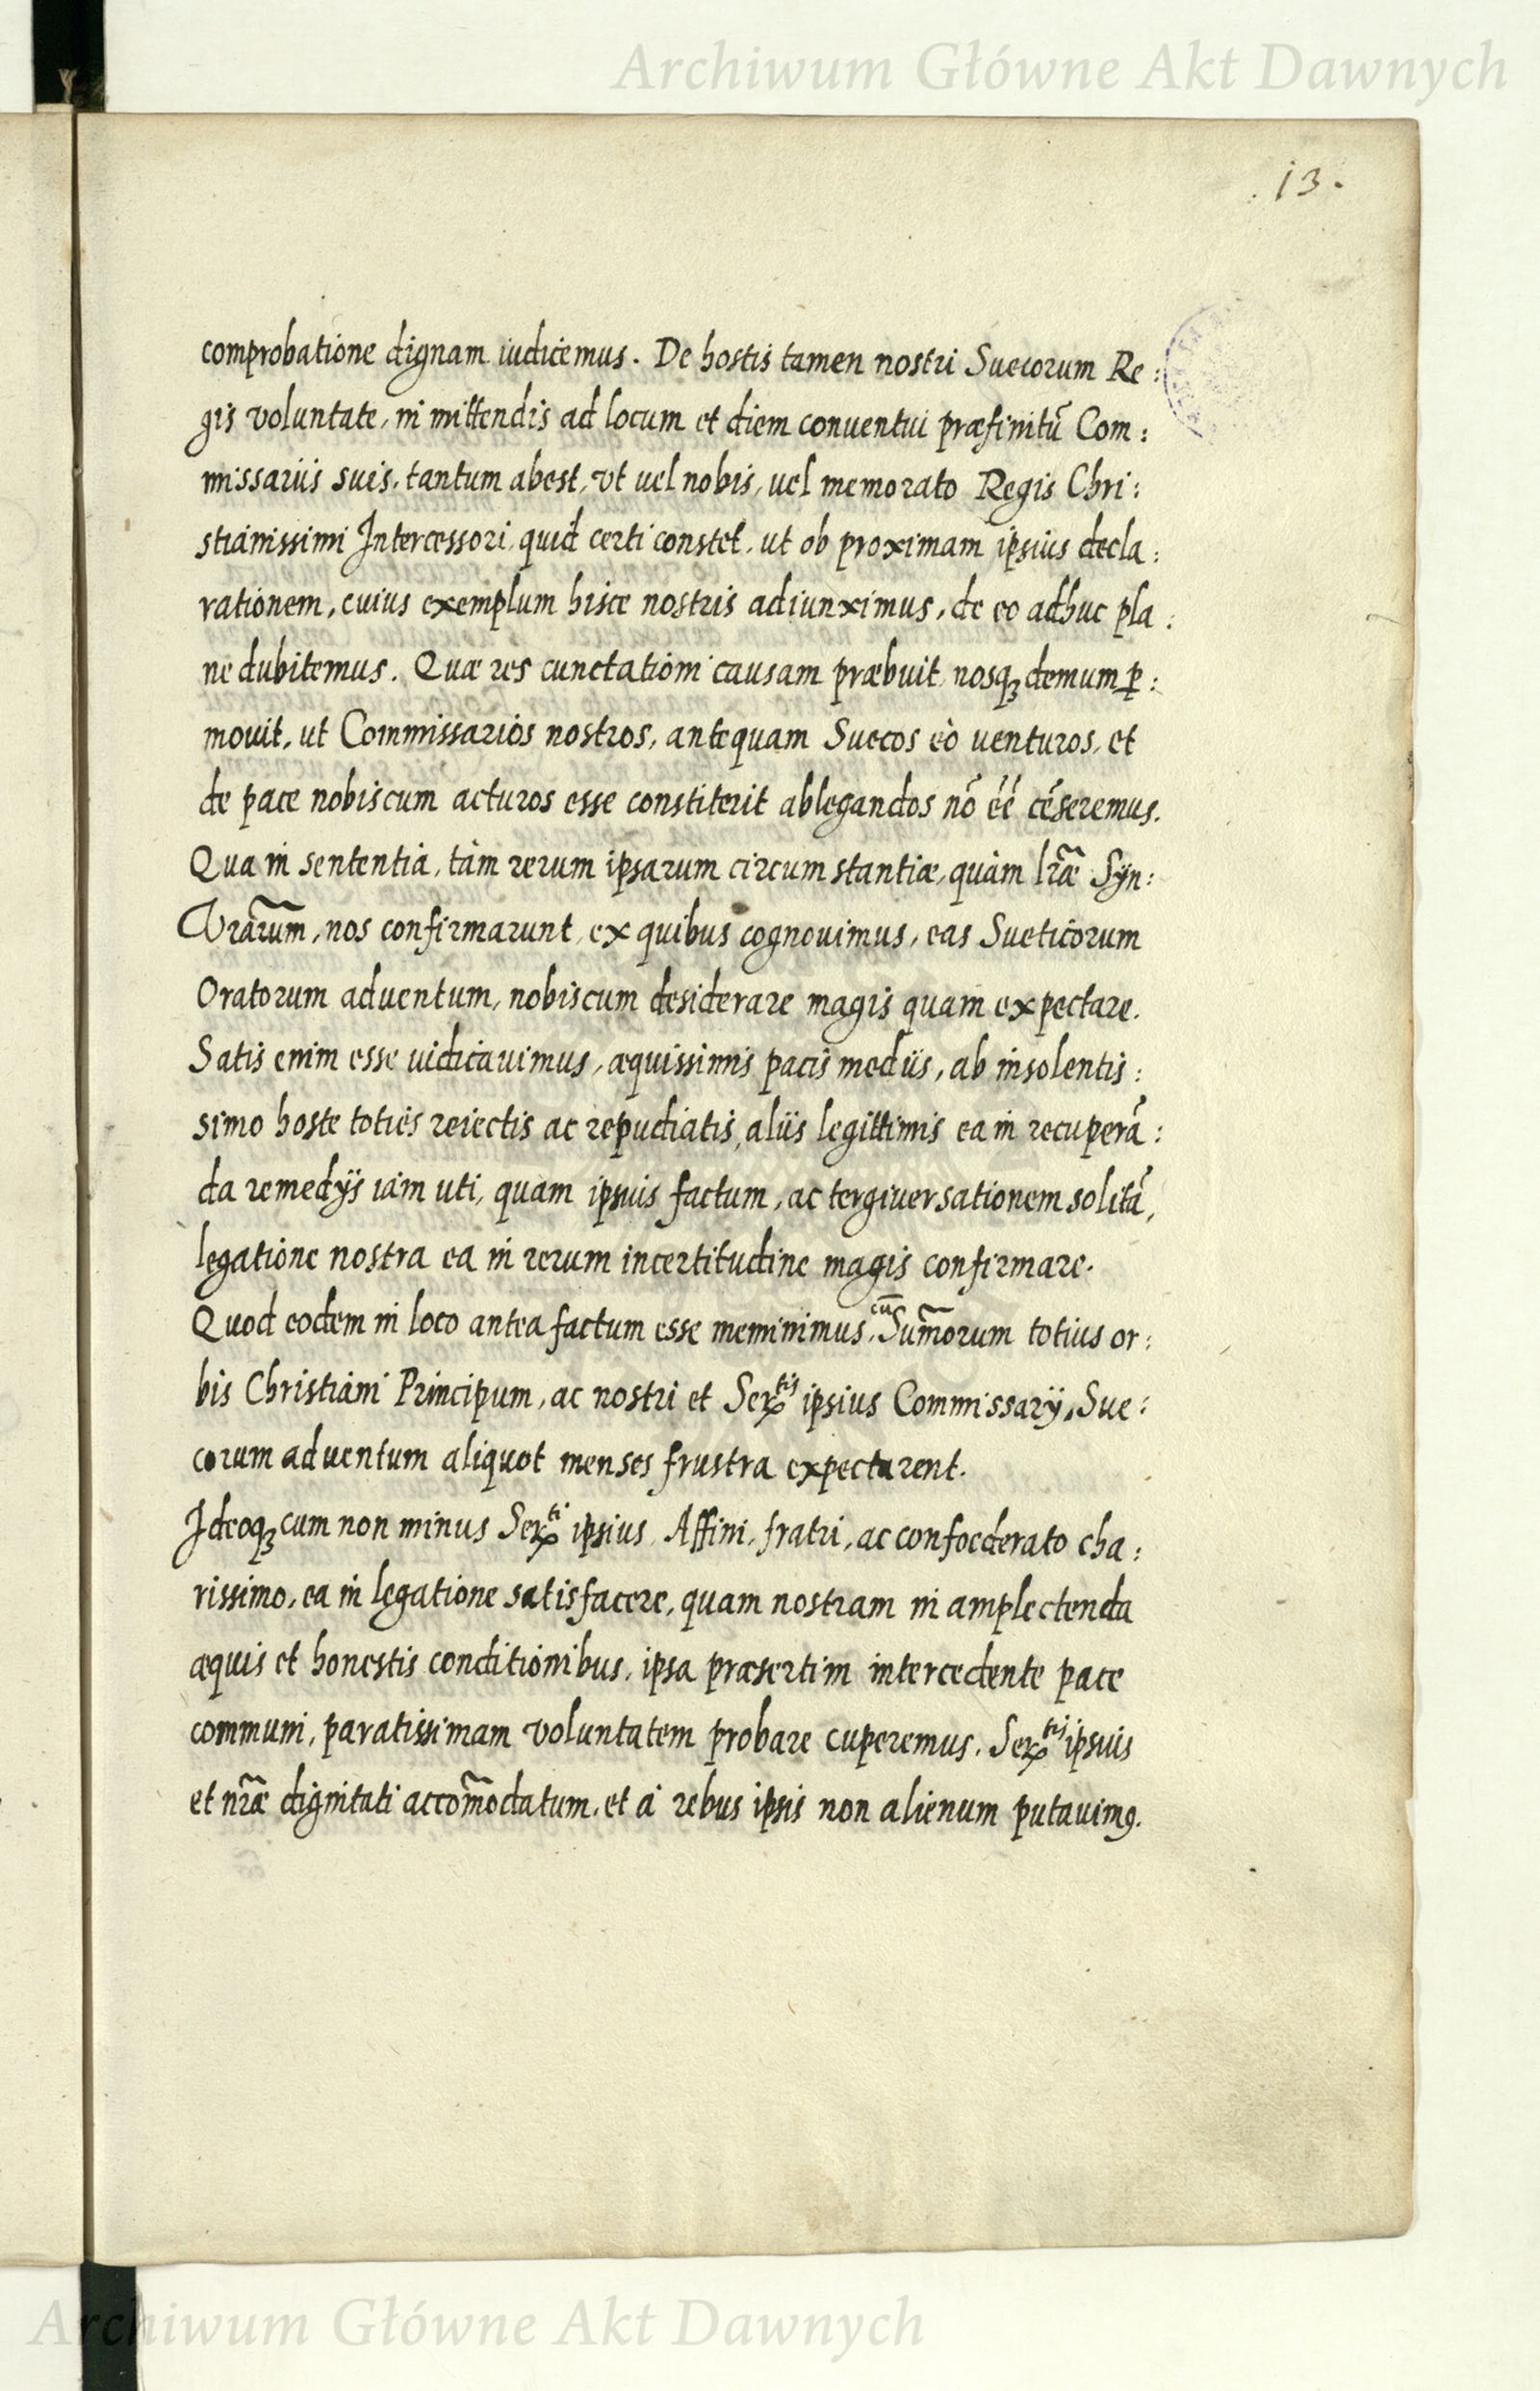 Archiwum Główne Akt Dawnych
13.
comprobatione dignam iudicemus. De hostis tamen nostri Suecorum Re:
gis voluntate, in mittendis ad locum et diem conuentui præfinitũ Com:
missariis suis, tantum abest, vt uel nobis, uel memorato Regis Chri:
stianissimi Intercessori, quid certi constet, ut ob proximam ipsius decla:
rationem, cuius exemplum hisce nostris adiunximus, de eo adhuc pla:
ne dubitemus. Quæ res cunctationi causam præbuit, nosqꝫ demum ꝑ:
mouit, ut Commissarios nostros, antequam Suecos eò venturos, et
de pace nobiscum acturos esse constiterit ablegandos nō ēē cēseremus.
Qua in sententia, tàm rerum ipsarum circumstantiæ, quàm lr̃æ Syn:
Vrãrum, nos confirmarunt, ex quibus cognouimus, eas Sueticorum
Oratorum aduentum, nobiscum desiderare magis quam expectare.
Satis enim esse iudicauimus, æquissimis pacis mediis, ab insolentis:
simo hoste toties reiectis ac repudiatis, aliis legittimis ea in recuperā:
da remedÿs iàm uti, quam ipsius factum, ac tergiuersationem solitā,
legatione nostra ea in rerum incertitudine magis confirmare.
Quod eodem in loco antea factum esse meminimus, cū Sum̃orum totius or:
bis Christiani Principum, ac nostri et Serᵗⁱˢ ipsius Commissarÿ, Sue:
corum aduentum aliquot menses frustra expectarent.
Ideoqꝫ cum non minus Serᵗⁱ ipsius, Affini, fratri, ac confoederato cha:
rissimo, ea in legatione satisfacere, quam nostram in amplectenda
æquis et honestis conditionibus, ipsa præsertim intercedente pace
communi, paratissimam voluntatem probare cuperemus, Serᵗⁱˢ ipsius
et nr̃æ dignitati accom̃odatum, et à rebus ipsis non alienum putauimꝰ.
Archiwum Główne Akt Dawnych